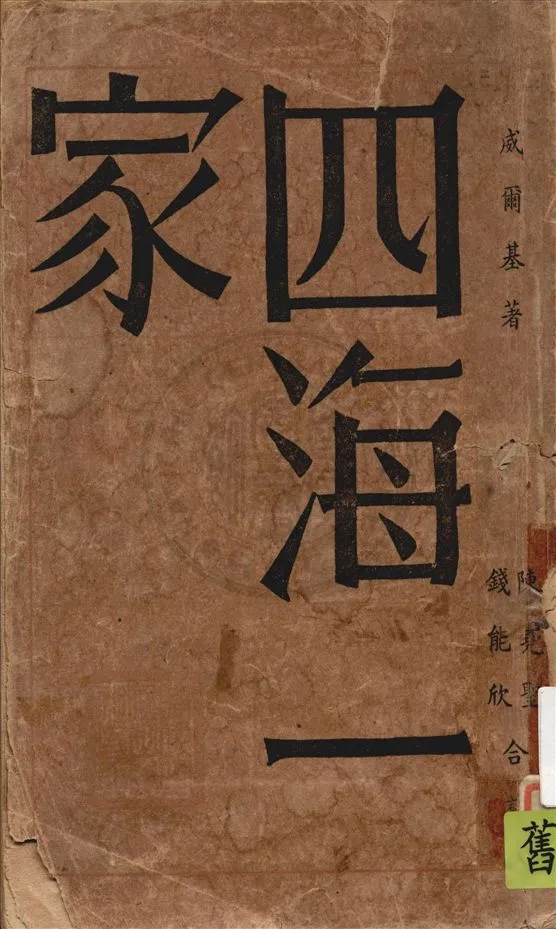 威爾基著
四海一
家
陳堯聖
錢能欣
合
舊